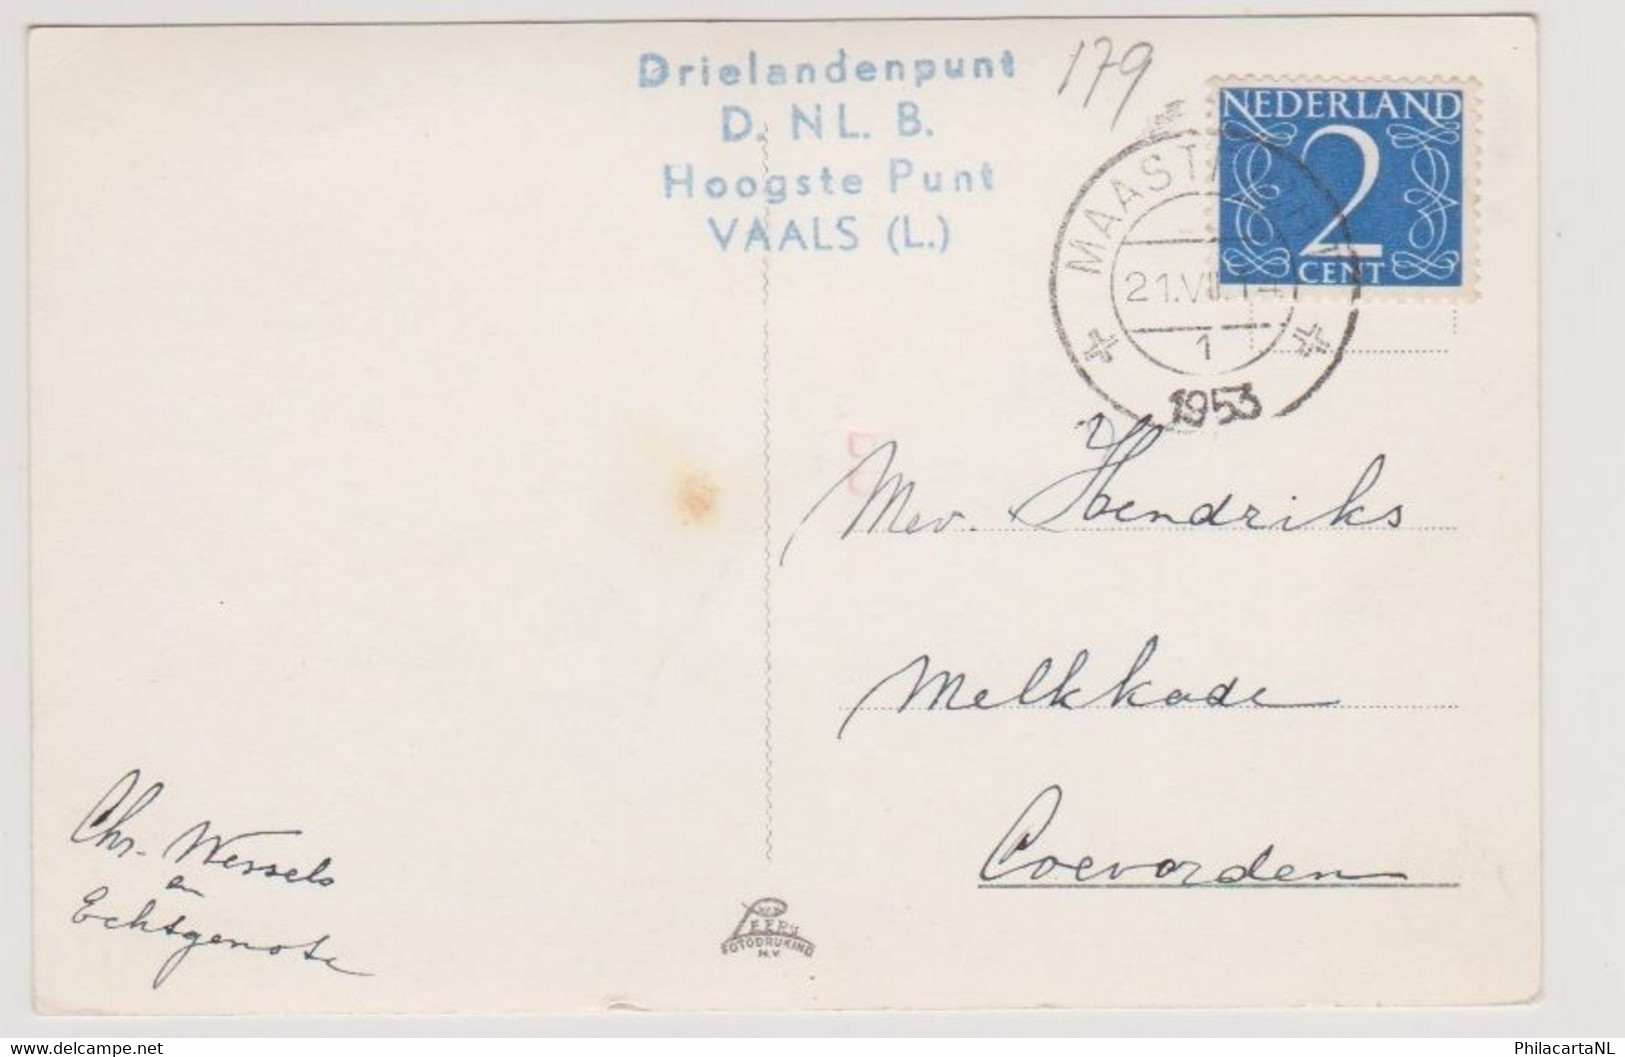 Drielandenpunt
D. NL. B.
Hoogste Punt
VAALS (L.)
179
NEDERLAND
2
CENT
1
1953
Mev. Hendriks
Melkkade
Coevorden
Chr. Wessels
en
Echtgenote
FOTODRUKIND
N.V.
www.delcampe.net
PhilacartaNL